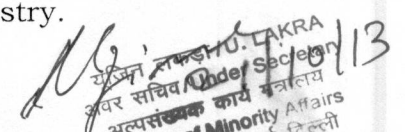 stry.
यूजिन लकड़ा/U. LAKRA
अवर सचिव/Under Secretary
अल्पसंख्यक कार्य मंत्रालय
Minority Affairs
दिल्ली
/10/13